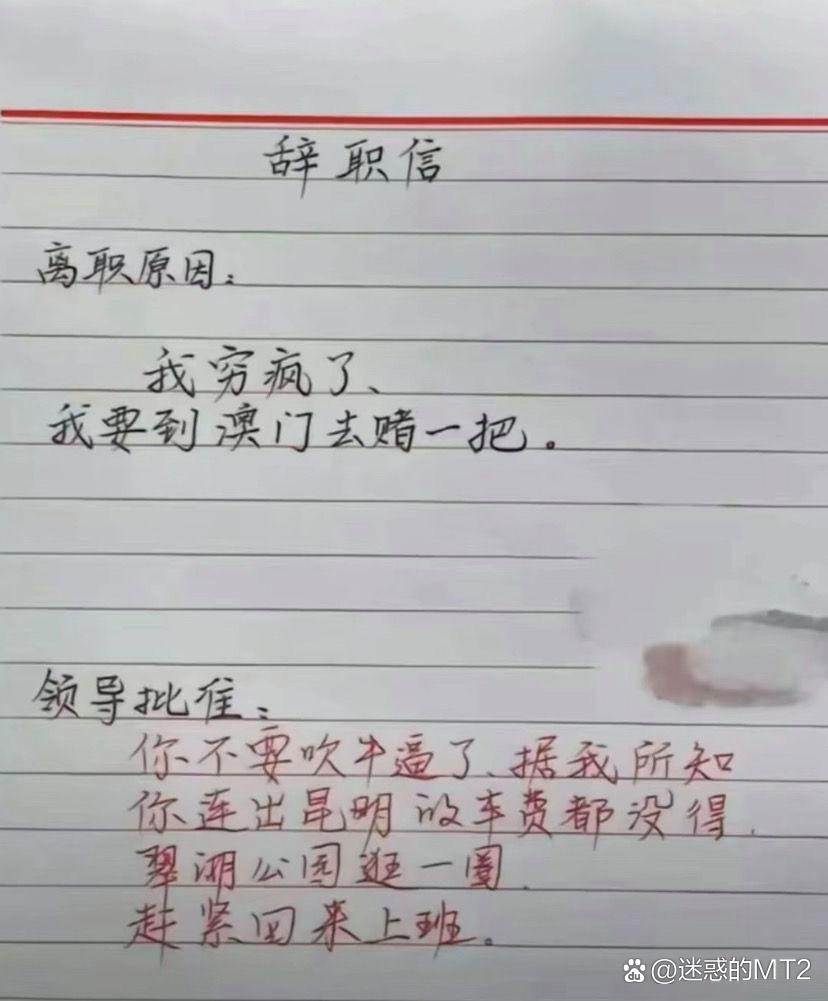 辞职信
离职原因：
我穷疯了、
我要到澳门去赌一把。
领导批准：
你不要吹牛逼了、据我所知
你连出昆明的车费都没得.
翠湖公园逛一圈.
赶紧回来上班。
@迷惑的MT2